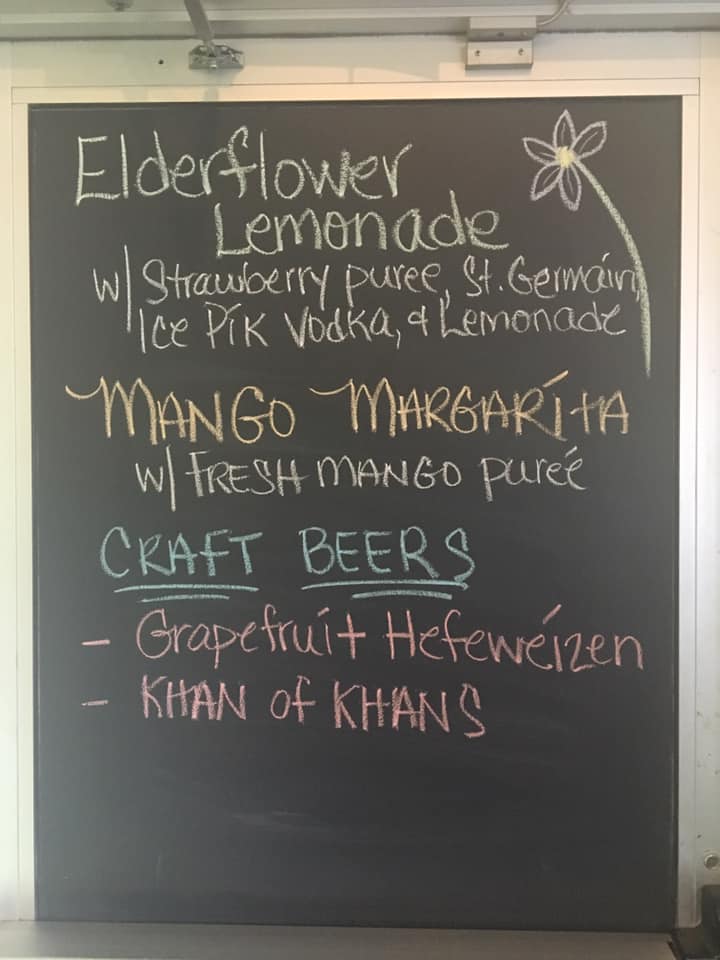 Elderflower
Lemonade
w/ Strawberry puree, St. Germain,
Ice Pik Vodka, & Lemonade
MANGO MARGARITA
w/ FRESH MANGO pureé
CRAFT BEERS
- Grapefruit Hefeweizen
- KHAN of KHANS